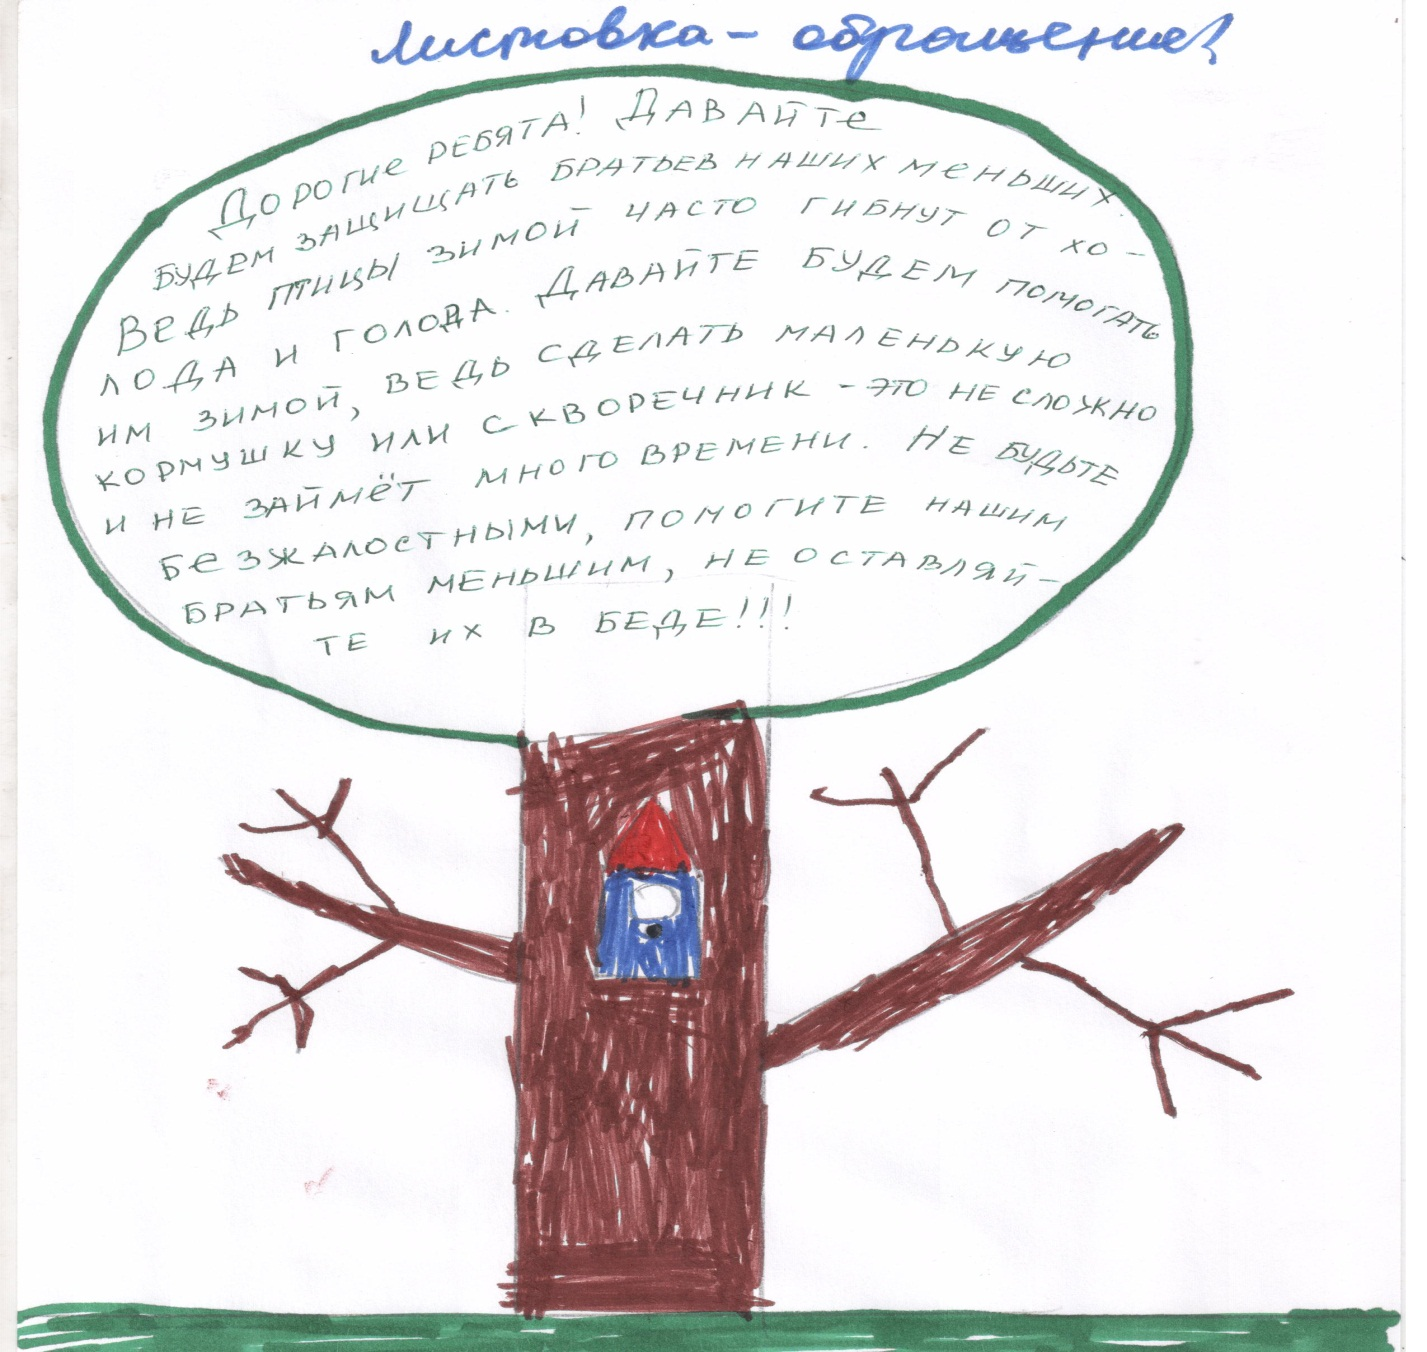 Листовка - обращение!
Дорогие ребята! Давайте
будем защищать братьев наших меньших.
Ведь птицы зимой часто гибнут от хо-
лода и голода. Давайте будем помогать
им зимой, ведь сделать маленькую
кормушку или скворечник - это не сложно
и не займёт много времени. Не будьте
безжалостными, помогите нашим
братьям меньшим, не оставляй-
те их в беде!!!